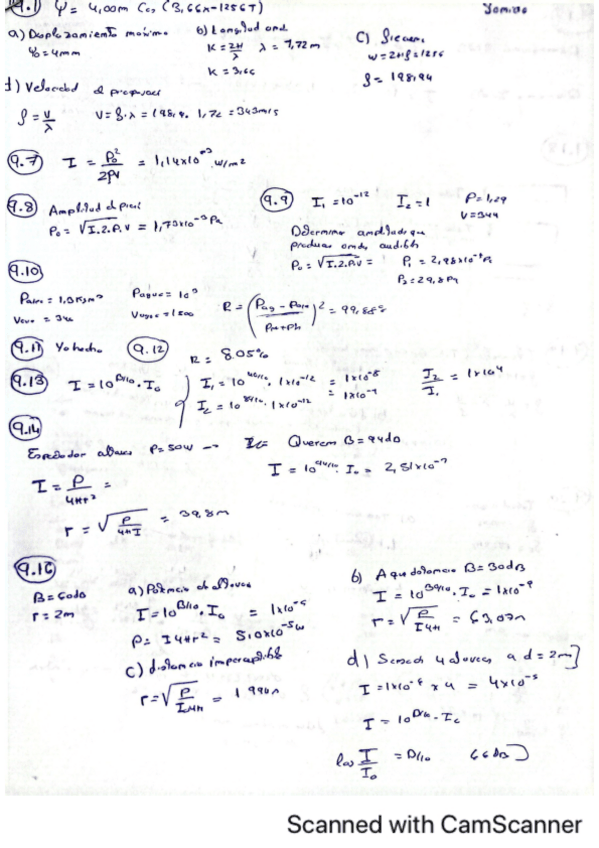 9.1 Ψ = 4,00m Cos (3,66x-1256T)
a) Desplazamiento máximo
Ψ0 = 4mm
b) Longitud onda
K = 2π/λ λ = 1,72m
K = 3,66
c) Frecuen
W = 2πf = 1256
f = 198,94
d) Velocidad de propagac
f = V/λ V = f·λ = 198,9. 1,72 = 343m/s
9.7 I = P0²/2ρV = 1,14x10⁻³ W/m²
9.8 Amplitud de presi
P0 = √I.2.ρ.V = 1,73x10⁻³ Pa
9.9 I1 = 10⁻¹² I2 = 1 ρ = 1,29
V = 344
Determine amplitud que
produce onda audible
P0 = √I.2.ρ.V =
P2 = 29,8 Pa
9.10
ρaire = 1,3 Kg/m³ ρagua = 10³
Vaire = 344 Vagua = 1500
R = = 99,88%
9.11 Ya hecho 9.12 R = 8.05%
9.13 I = 10^(B/10) · I0
I1 = 1x10⁻⁸
I2 = 1x10⁻⁴
I2/I1 = 1x10⁴
9.14
P = 50W → Queremos B = 94db
I = P/4πr² =
I = 10^(94/10) · I0 = 2,51x10⁻³
r = √P/4πI = 39,8m
9.16
B = 60db
r = 2m
a) Potencia del altavoz
I = 10^(B/10) · I0 = 1x10⁻⁶
P = I4πr² = 5,0x10⁻⁵ W
b) A que distancia B = 30dB
I = 10^(30/10) · I0 = 1x10⁻⁹
r = √P/I4π = 63,07m
c) distancia imperceptible
r = √P/I04π = 1 990m
d) Se 4 altavoces a d = 2m
I = 1x10⁻⁶ x 4 = 4x10⁻⁶
I = 10^(B/10) · I0
log I/I0 = B/10 66dB
Scanned with CamScanner